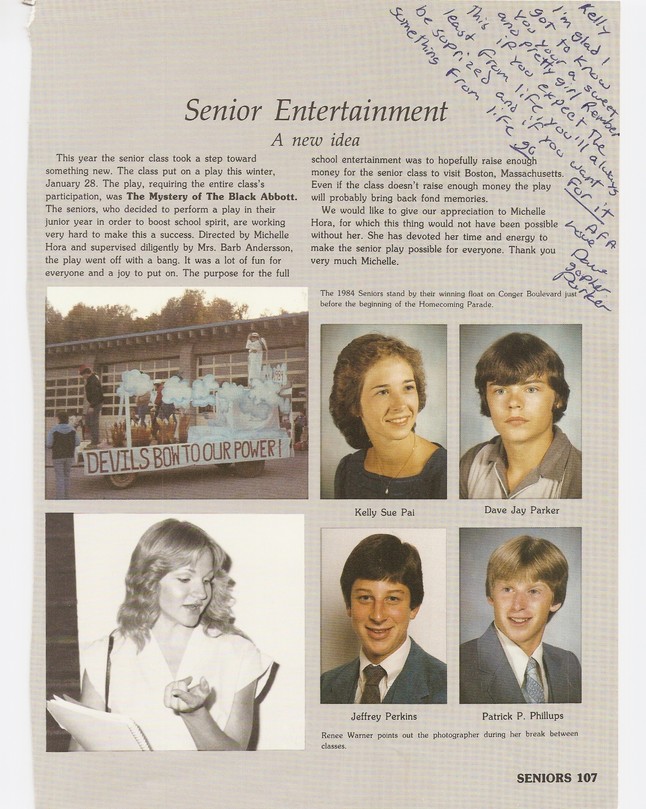 Kelly
I'm glad I
got to know
you your a sweet
and pretty girl Rember
This if you expect The
least from life you'll always
be suprized and if you want
something from life go
For it
AFA
Love Dave
gopher
Parker
Senior Entertainment
A new idea
This year the senior class took a step toward
something new. The class put on a play this winter,
January 28. The play, requiring the entire class's
participation, was The Mystery of The Black Abbott.
The seniors, who decided to perform a play in their
junior year in order to boost school spirit, are working
very hard to make this a success. Directed by Michelle
Hora and supervised diligently by Mrs. Barb Andersson,
the play went off with a bang. It was a lot of fun for
everyone and a joy to put on. The purpose for the full
school entertainment was to hopefully raise enough
money for the senior class to visit Boston, Massachusetts.
Even if the class doesn't raise enough money the play
will probably bring back fond memories.
We would like to give our appreciation to Michelle
Hora, for which this thing would not have been possible
without her. She has devoted her time and energy to
make the senior play possible for everyone. Thank you
very much Michelle.
The 1984 Seniors stand by their winning float on Conger Boulevard just
before the beginning of the Homecoming Parade.
DEVILS BOW TO OUR POWER!
Kelly Sue Pai
Dave Jay Parker
Jeffrey Perkins
Patrick P. Phillups
Renee Warner points out the photographer during her break between
classes.
SENIORS 107